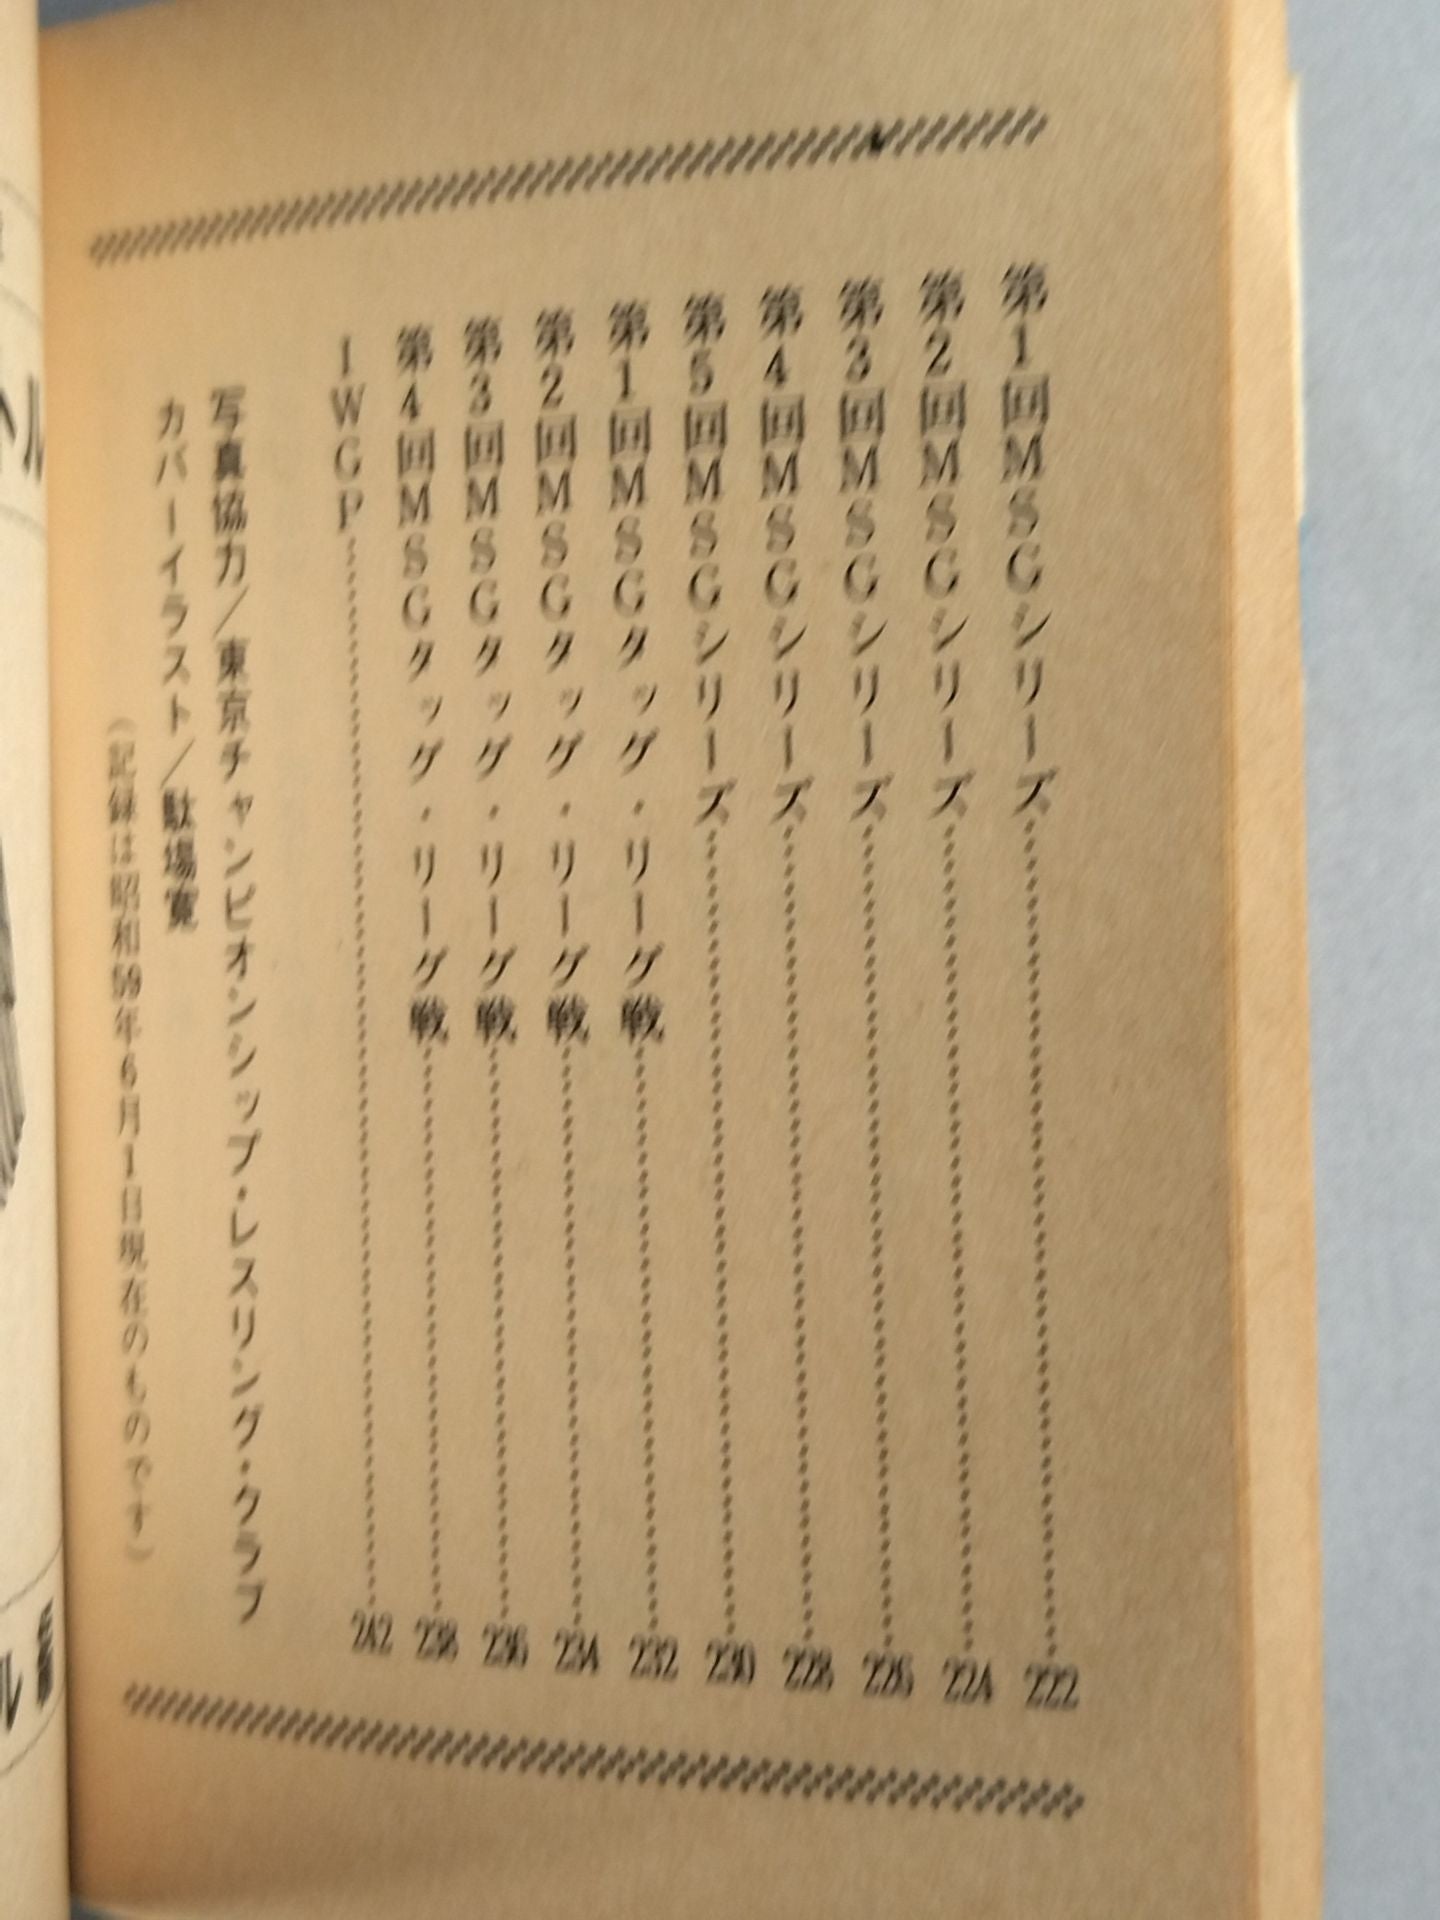 第1回MSGシリーズ……222
第2回MSGシリーズ……224
第3回MSGシリーズ……226
第4回MSGシリーズ……228
第5回MSGシリーズ……230
第1回MSGタッグ・リーグ戦……232
第2回MSGタッグ・リーグ戦……234
第3回MSGタッグ・リーグ戦……236
第4回MSGタッグ・リーグ戦……238
IWGP……242
写真協力/東京チャンピオンシップ・レスリング・クラブ
カバーイラスト/駄場寛
(記録は昭和59年6月1日現在のものです)
トル
ル 編